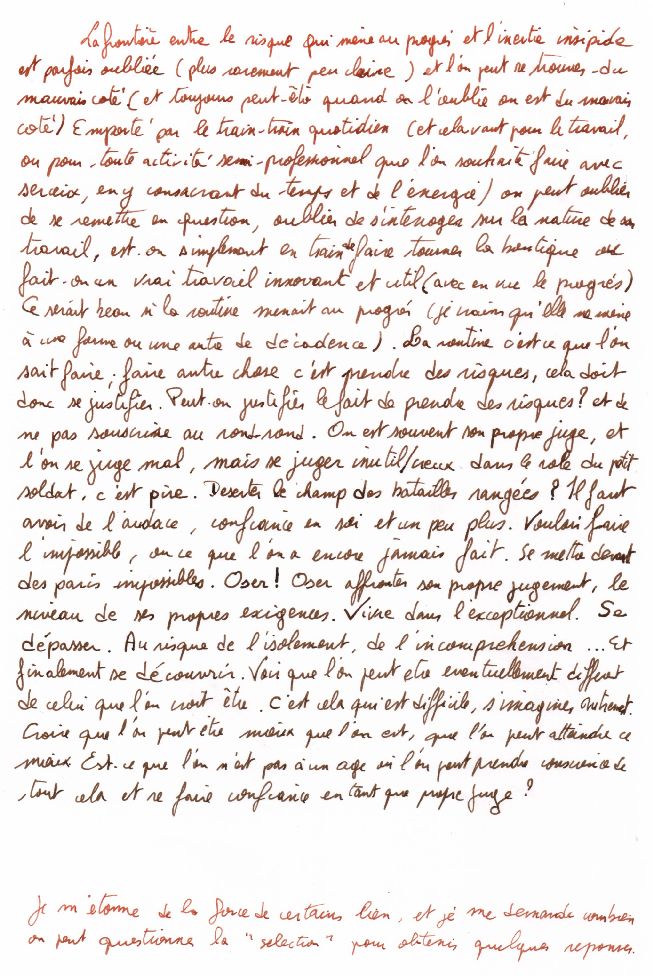 La frontière entre le risque qui mène au progrés et l'inertie insipide
est parfois oubliée (plus rarement peu claire) et l'on peut se trouver du
mauvais coté (et toujours peut-être quand on l'oublie on est du mauvais
coté) Emporté par le train-train quotidien (et cela vaut pour le travail,
ou pour toute activité semi-professionnel que l'on souhaite faire avec
serieux, en y consacrant du temps et de l'énergie) on peut oublier
de se remettre en question, oublier de s'interroger sur la nature de son
travail, est-on simplement en train de faire tourner la boutique ou
fait-on un vrai travail innovant et util (avec en vue le progrés)
Ce serait beau si la routine menait au progrés (je crains qu'elle ne mène
à une forme ou une autre de décadence). La routine c'est ce que l'on
sait faire ; faire autre chose c'est prendre des risques, cela doit
donc se justifier. Peut-on justifier le fait de prendre des risques? et de
ne pas souscrire au rond-rond. On est souvent son propre juge, et
l'on se juge mal, mais se juger inutil/vieux dans le role du petit
soldat, c'est pire. Deserter le champ des batailles rangées ? Il faut
avoir de l'audace, confiance en soi et un peu plus. Vouloir faire
l'impossible, ou ce que l'on a encore jamais fait. Se mettre devant
des paris impossibles. Oser! Oser affronter son propre jugement, le
niveau de ses propres exigences. Vivre dans l'exceptionnel. Se
dépasser. Au risque de l'isolement, de l'incomprehension ... Et
finalement se découvrir. Voir que l'on peut etre eventuellement different
de celui que l'on croit être. C'est cela qui est difficile, s'imaginer autrement.
Croire que l'on peut être mieux que l'on est, que l'on peut atteindre ce
mieux Est-ce que l'on n'est pas à un age où l'on peut prendre conscience de
tout cela et se faire confiance en tant que propre juge ?
Je m'étonne de la force de certains lien, et je me demande combien
on peut questionner la "selection" pour obtenir quelques reponses.